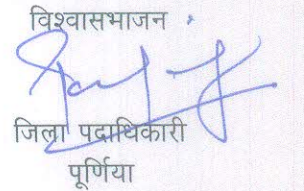 विश्वासभाजन
जिला पदाधिकारी
पूर्णिया